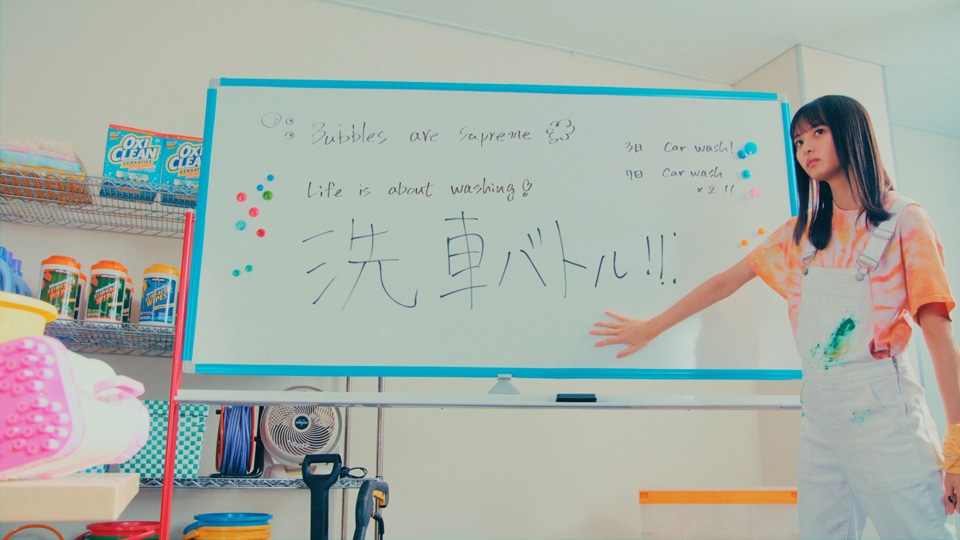 Bubbles are sapreme
Life is about washing!
洗車バトル!!
3日 Car wash!
7日 Car wash
×2 !!
OXI
CLEAN
VERSATILE
OXI
CLEAN
WIPES